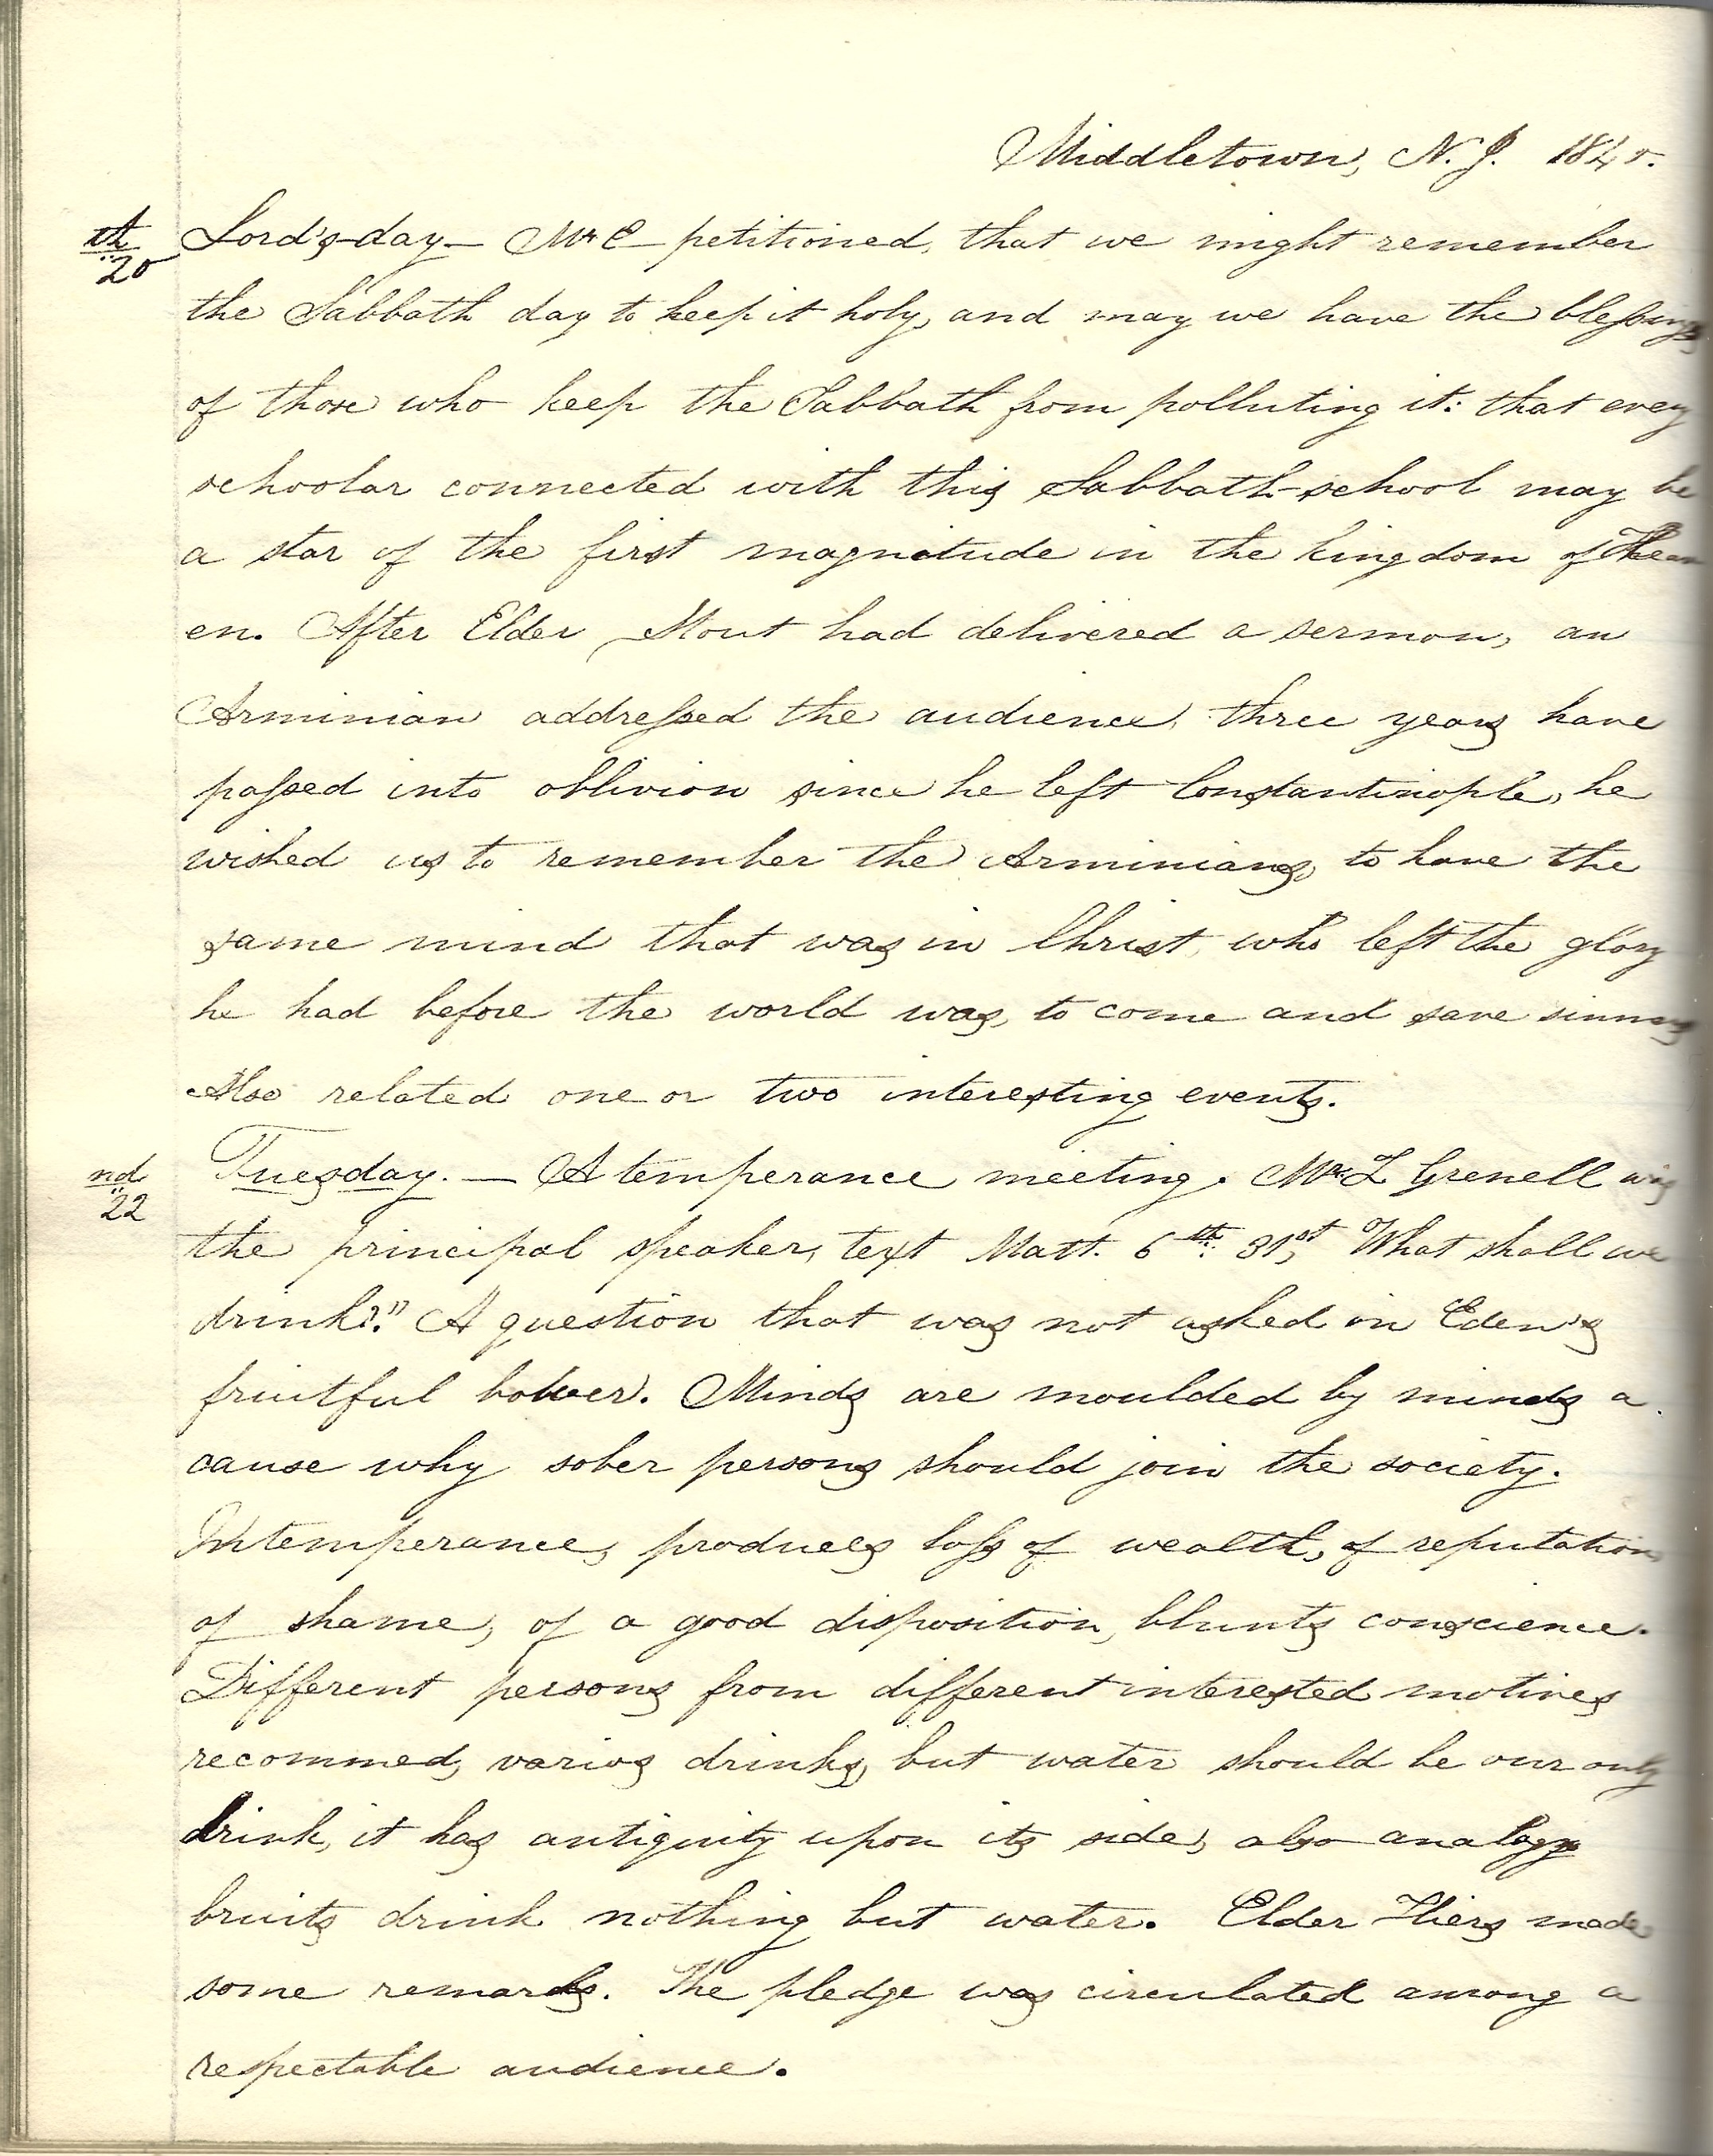 Middletown, N. J. 1840.
th 20 Lord's-day— Mr C— petitioned, that we might remember
the Sabbath day to keep it holy, and may we have the blessings,
of those who keep the Sabbath from polluting it: that every
schoolar connected with this Sabbath-school may be
a star of the first magnitude in the kingdom of
en. After Elder Stout had delivered a sermon, an
Arminian addressed the audience, three years have
passed into oblivion since he left Constantinople, he
wished us to remember the Arminians, to have the
same mind that was in Christ, who left the glory
he had before the world was, to come and save sinners
Also related one or two interesting events.
nd 22 Tuesday. — A temperance meeting. Mr Z Grenell was
the principal speaker, text Matt. 6th. 31st, "What shall we
drink?". A question that was not asked in Eden's
fruitful bower. Minds are moulded by minds a
cause why sober persons should join the society.
Intemperance, produces loss of wealth, of reputation
of shame, of a good disposition, blunts conscience.
Different persons from different interested motives
recommed, varios drinks, but water should be our only
drink, it has antiquity upon its side, also analogy
bruits drink nothing but water. Elder made
some remarks. The pledge was circulated among a
respectable audience.